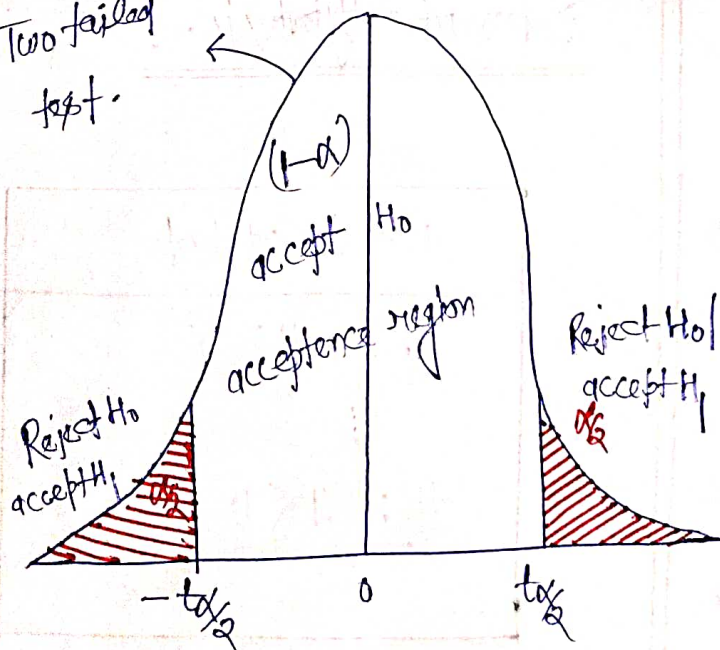 Two tailed
test.
(1-α)
accept H₀
acceptence region
Reject H₀
accept H₁
α/2
Reject H₀/
accept H₁
α/2
-tα/2
0
tα/2